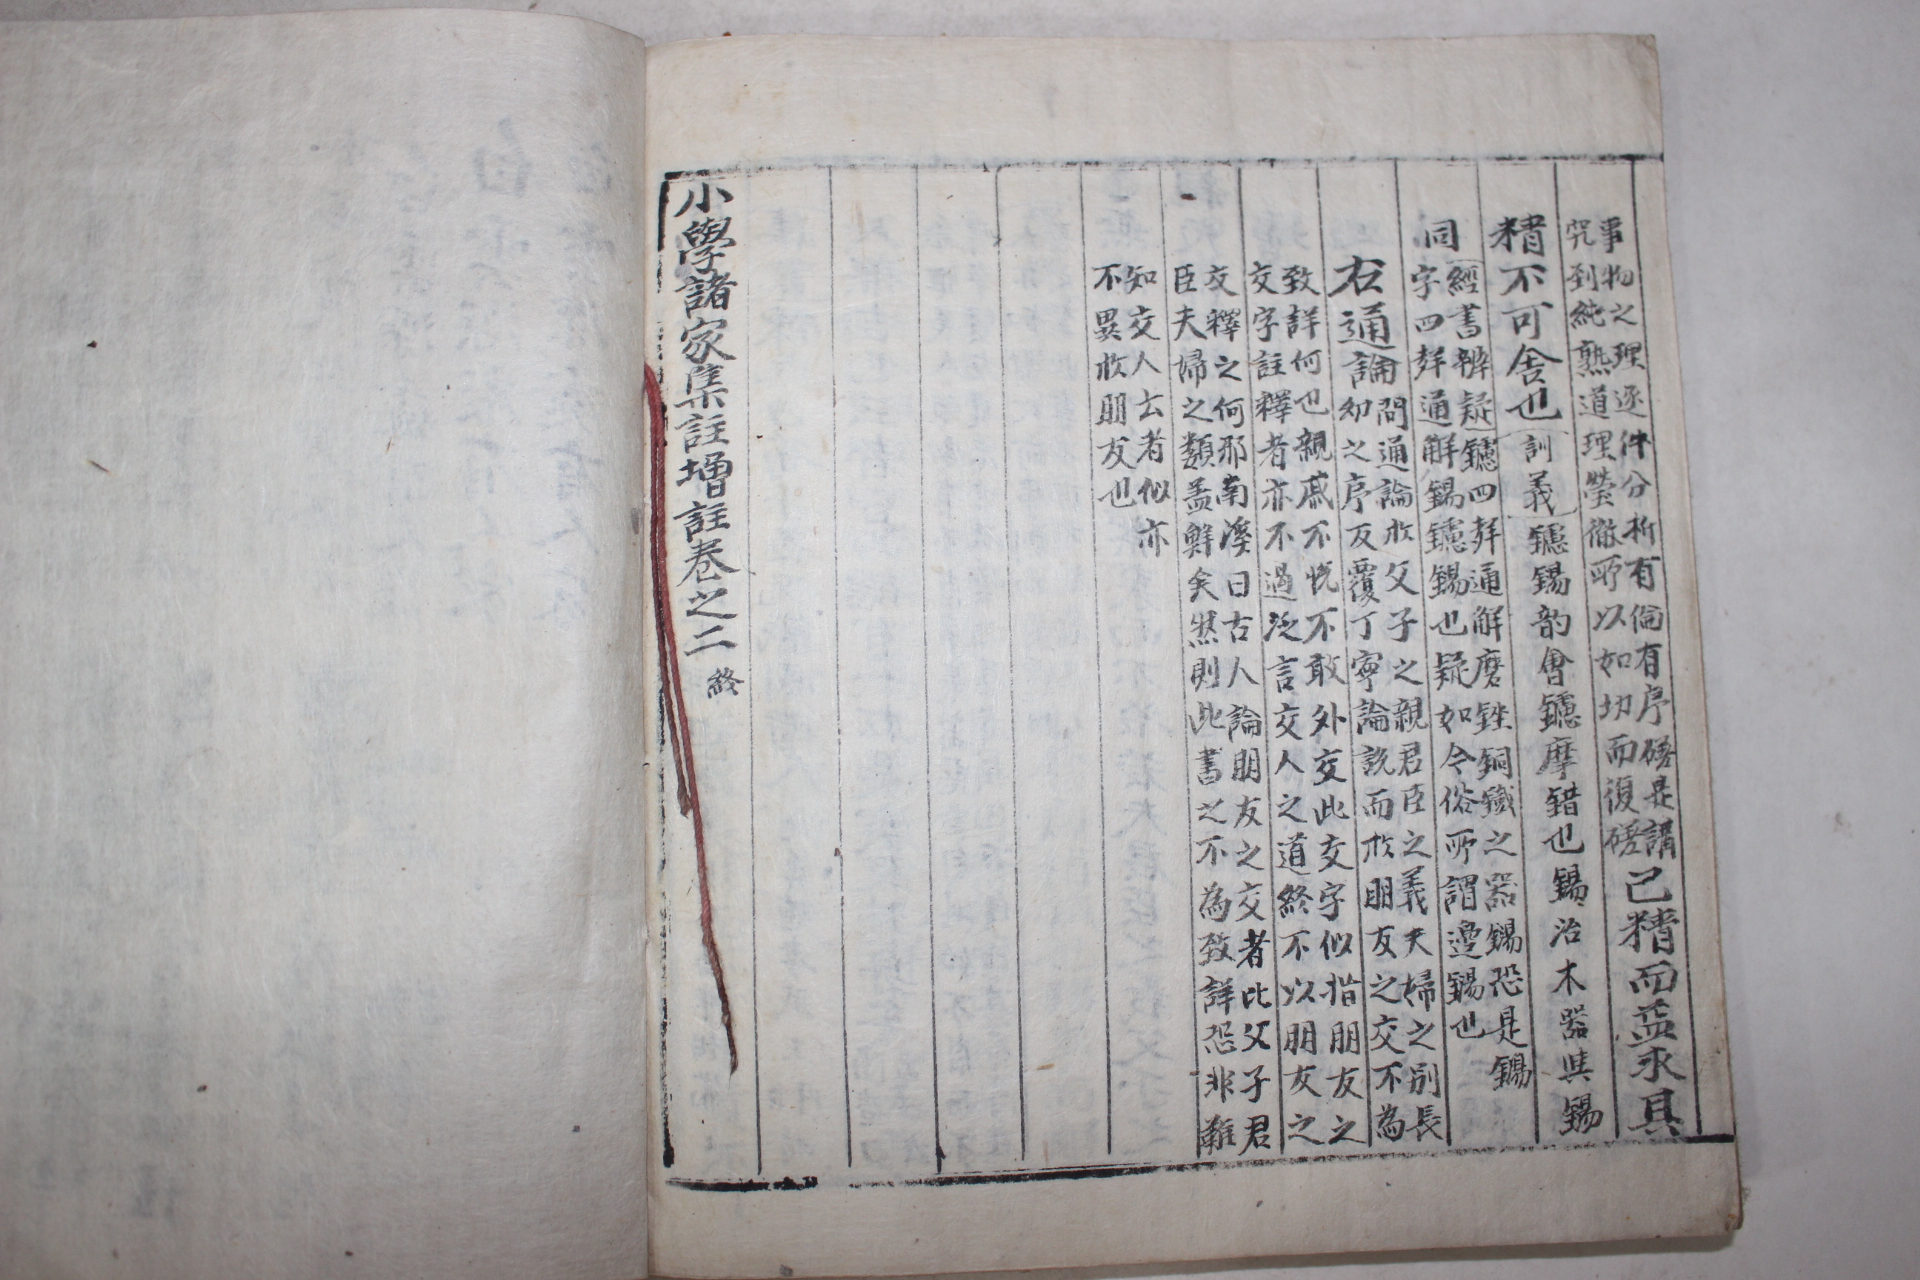 事物之理逐件分析有倫有序磋是講
究到純熟道理瑩徹所以如切而復磋
已精而益求其
精不可舍也
訓義鑢鐋韵會鑢摩錯也鐋治木器與鐋
同
經書辨疑鑢四解通解磨銼銅鐵之器鐋恐是鐋
字四解通解鐋鑢鐋也疑如今俗所謂邊鐋也
右通論
問通論於父子之親君臣之義夫婦之別長
幼之序反覆丁寧論說而於朋友之交不為
致詳何也親戚不悅不敢外交此交字似指朋友之
交字註釋者亦不過泛言交人之道終不以朋友之
交釋之何耶南溪曰古人論朋友之交者比父子君
臣夫婦之類盖鮮矣然則此書之不為致詳恐非難
知交人云者似亦
不異於朋友也
小學諸家集註增註卷之二 終